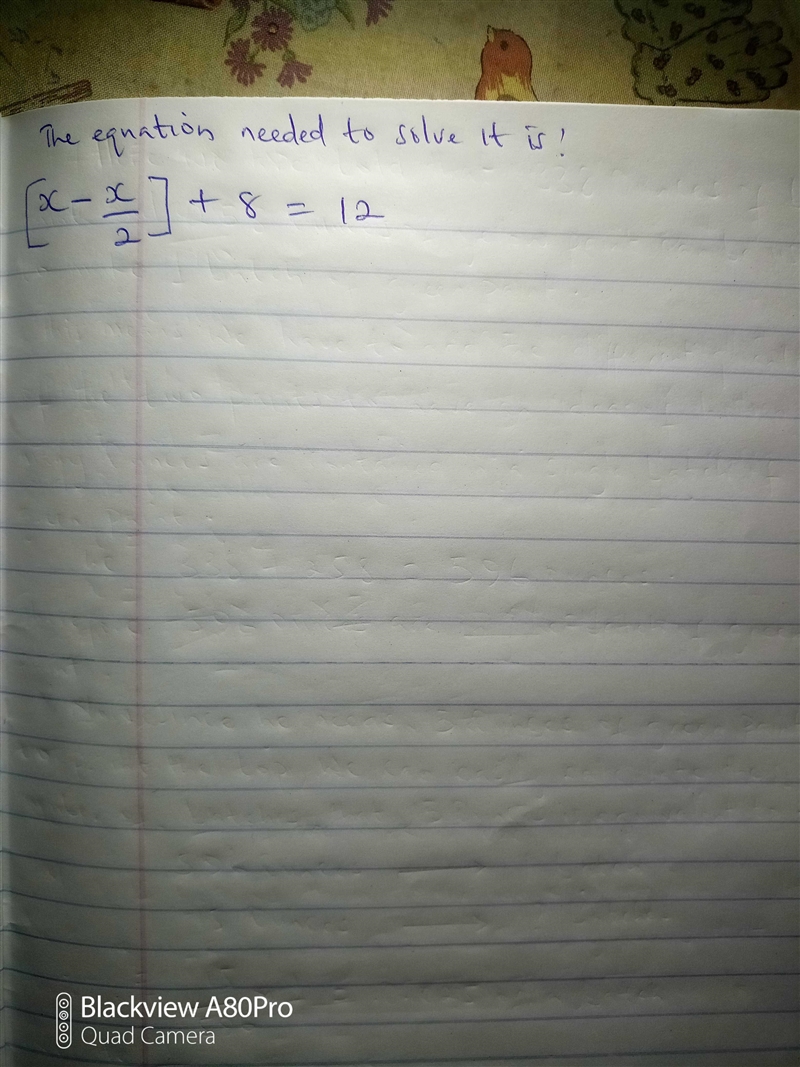 The equation needed to solve it is!
[x - x/2] + 8 = 12
Blackview A80Pro
Quad Camera